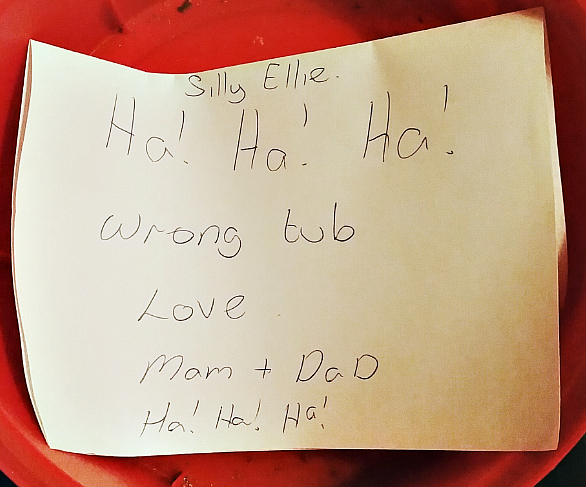 Silly Ellie.
Ha! Ha! Ha!
Wrong tub
Love
Mam + DaD
Ha! Ha! Ha!